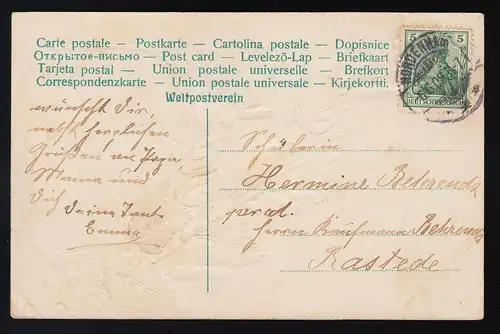 Carte postale – Postkarte – Cartolina postale – Dopisnice
Открытое-письмо – Post card – Levelező-Lap – Briefkaart
Tarjeta postal – Union postale universelle – Brefkort
Correspondenzkarte – Union postale universale – Kirjekortiti.
Weltpostverein
5 5
DEUTSCHES REICH
wünscht Dir,
nebst herzlichen
Grüßen an Papa,
Mama und
Dich Deine Tante
Emma
Schülerin
Hermine Behrends
Herrn Kaufmann Behrends
Rastede